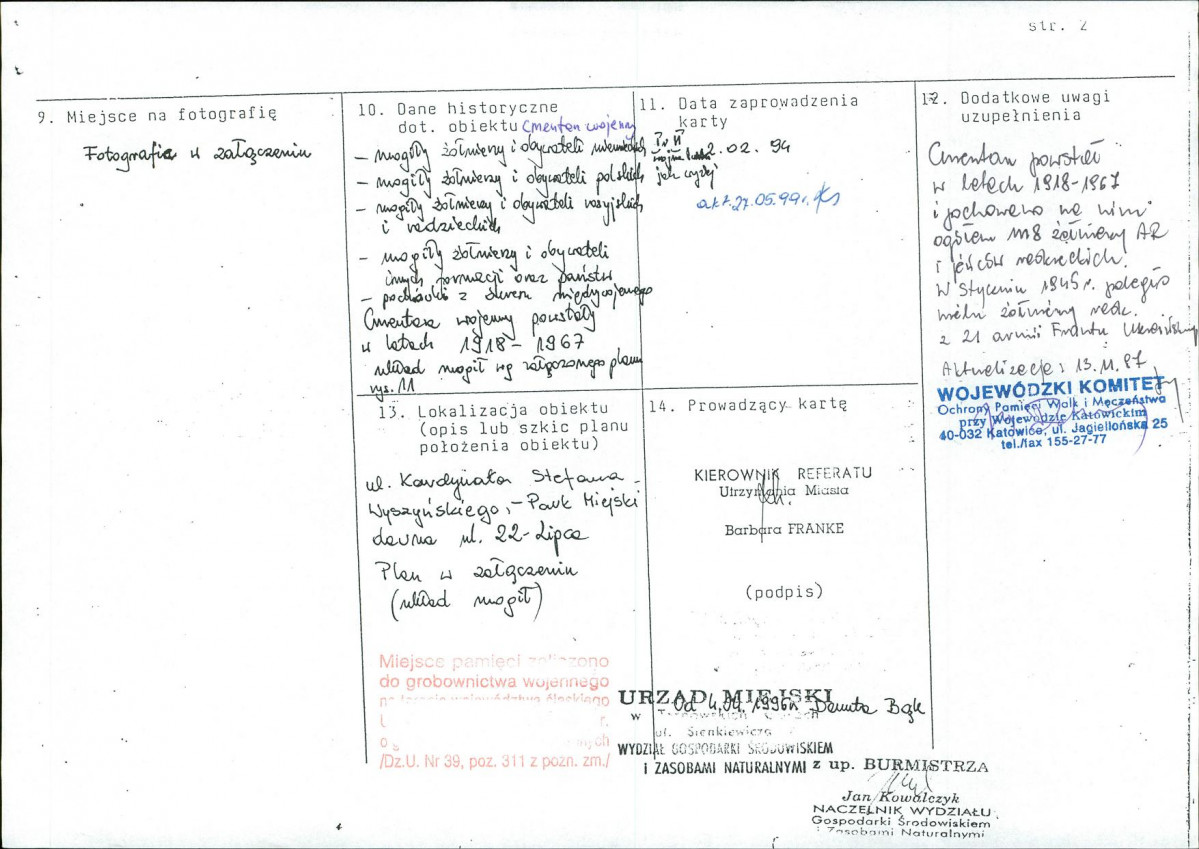 str. 2
9. Miejsce na fotografię
Fotografia w załączeniu
10. Dane historyczne
dot. obiektu Cmentarz wojenny
– mogiły żołnierzy i obywateli niemieckich
– mogiły żołnierzy i obywateli polskich
– mogiły żołnierzy i obywateli rosyjskich
i radzieckich
– mogiły żołnierzy i obywateli
innych formacji oraz państw
– pochówki z okresu międzywojennego
Cmentarz wojenny powstały
w latach 1918 – 1967
układ mogił wg załączonego planu
rys. 11
11. Data zaprowadzenia
karty
I i II
2.02. 94
jak wyżej
akt. 27.05.99r.
12. Dodatkowe uwagi
uzupełnienia
Cmentarz powstał
w latach 1918-1967
i pochowano na nim
ogółem 1118 żołnierzy AR
i jeńców radzieckich.
W styczniu 1945 r. poległo
wielu żołnierzy radz.
z 21 armii Frontu Ukraińskiego
Aktualizacja: 13.11.87
WOJEWÓDZKI KOMITET
Ochrony Pamięci Walk i Męczeństwa
przy Wojewodzie Katowickim
40-032 Katowice, ul. Jagiellońska 25
tel./fax 155-27-77
13. Lokalizacja obiektu
(opis lub szkic planu
położenia obiektu)
ul. Kardynała Stefana
Wyszyńskiego, – Park Miejski
dawna ul. 22-Lipca
Plan w załączeniu
(układ mogił)
Miejsce pamięci zaliczono
do grobownictwa wojennego
na terenie województwa śląskiego
/Dz.U. Nr 39, poz. 311 z pozn. zm./
14. Prowadzący kartę
KIEROWNIK REFERATU
Utrzymania Miasta
Barbara FRANKE
(podpis)
URZĄD MIEJSKI
od 4.04.1996r. Danuta Bąk
w Tarnowskich Górach
ul. Sienkiewicza
WYDZIAŁ GOSPODARKI ŚRODOWISKIEM
I ZASOBAMI NATURALNYMI
z up. BURMISTRZA
Jan Kowalczyk
NACZELNIK WYDZIAŁU
Gospodarki Środowiskiem
i Zasobami Naturalnymi